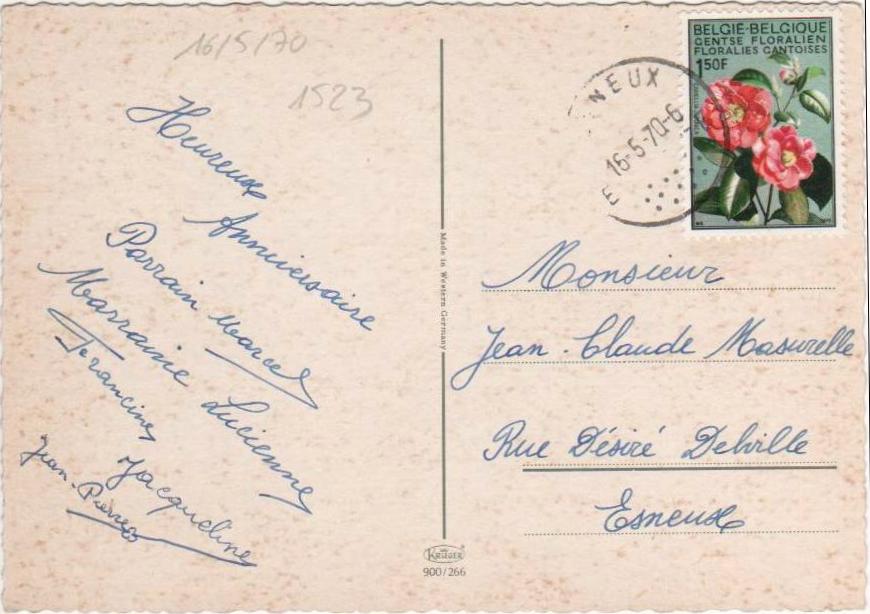 16/5/70
1523
Heureux
Anniversaire
Parrain Marcel
Marraine Lucienne
Francine Jacqueline
Jean-Pierre
Made in Western Germany
KRÜGER
900/266
NEUX
16-5-70-6
E
BELGIË-BELGIQUE
GENTSE FLORALIEN
FLORALIES GANTOISES
1,50F
Monsieur
Jean-Claude Masurelle
Rue Désiré Delville
Esneux